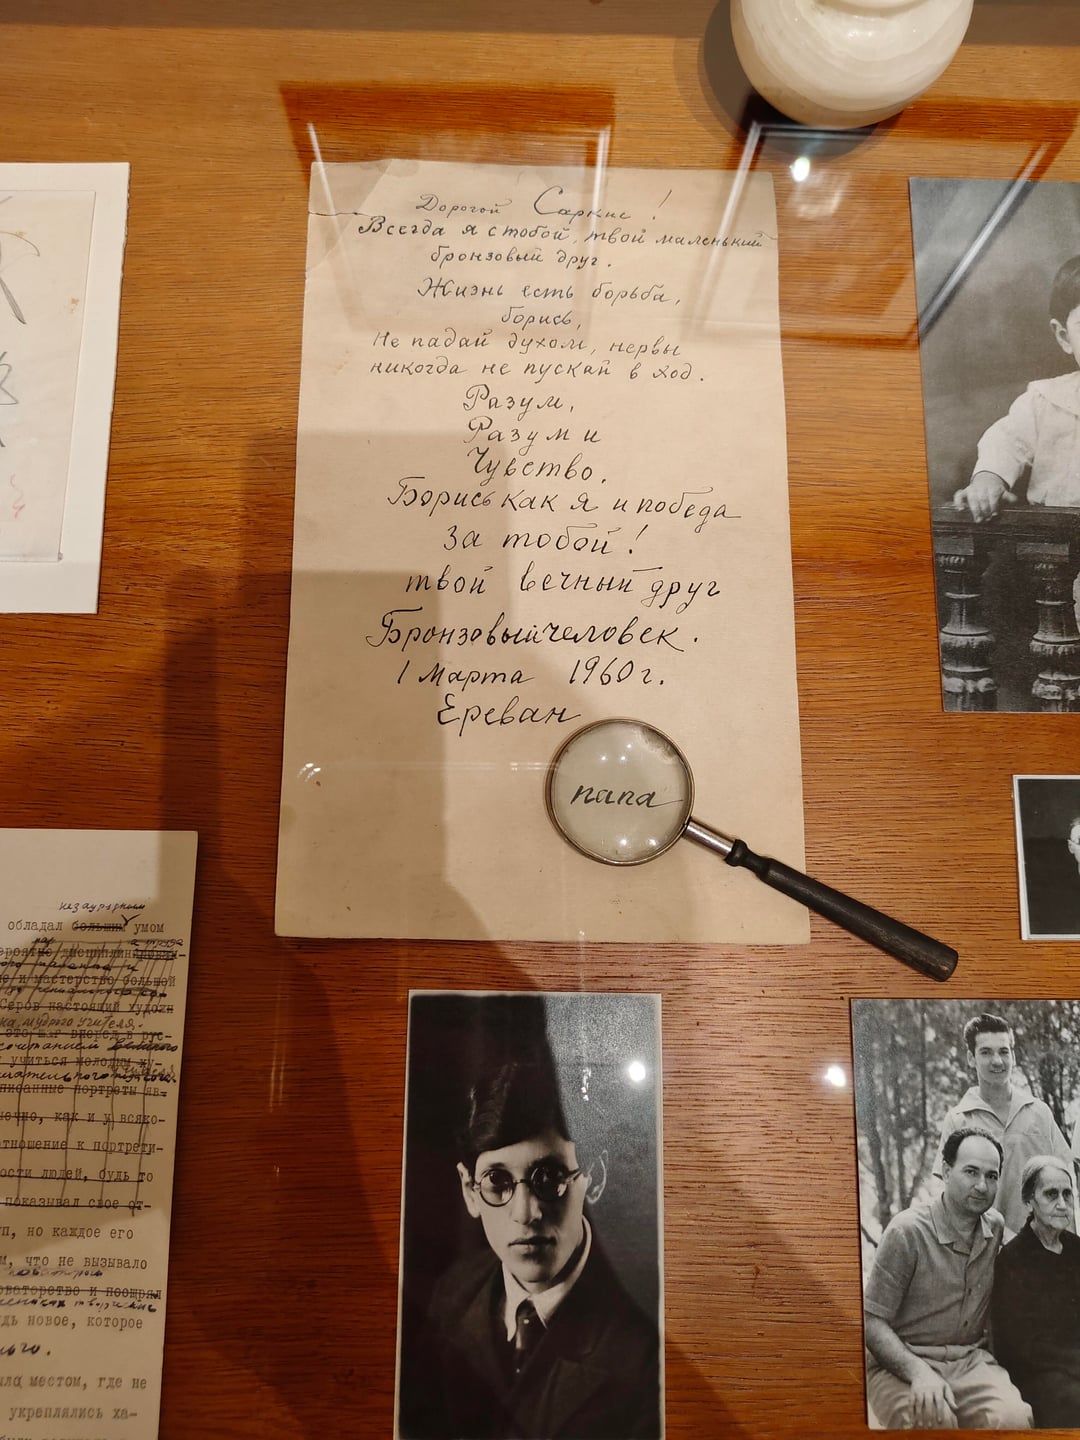 Дорогой Саркис!
Всегда я с тобой, твой маленький
бронзовый друг.
Жизнь есть борьба,
борись,
Не падай духом, нервы
никогда не пускай в ход.
Разум,
Разум и
Чувство.
Борись как я и победа
за тобой!
твой вечный друг
Бронзовый человек.
1 Марта 1960 г.
Ереван
папа
незаурядным
обладал большим умом
и мастерство большой
Серов настоящий худож
это шаг вперед в рус-
учиться молодым ху-
писанные портреты яв-
как и у всяко-
отношение к портрети-
ости людей, будь то
показывал свое от-
но каждое его
что не вызывало
оваторство и поощрял
новое, которое
местом, где не
укреплялись ха-